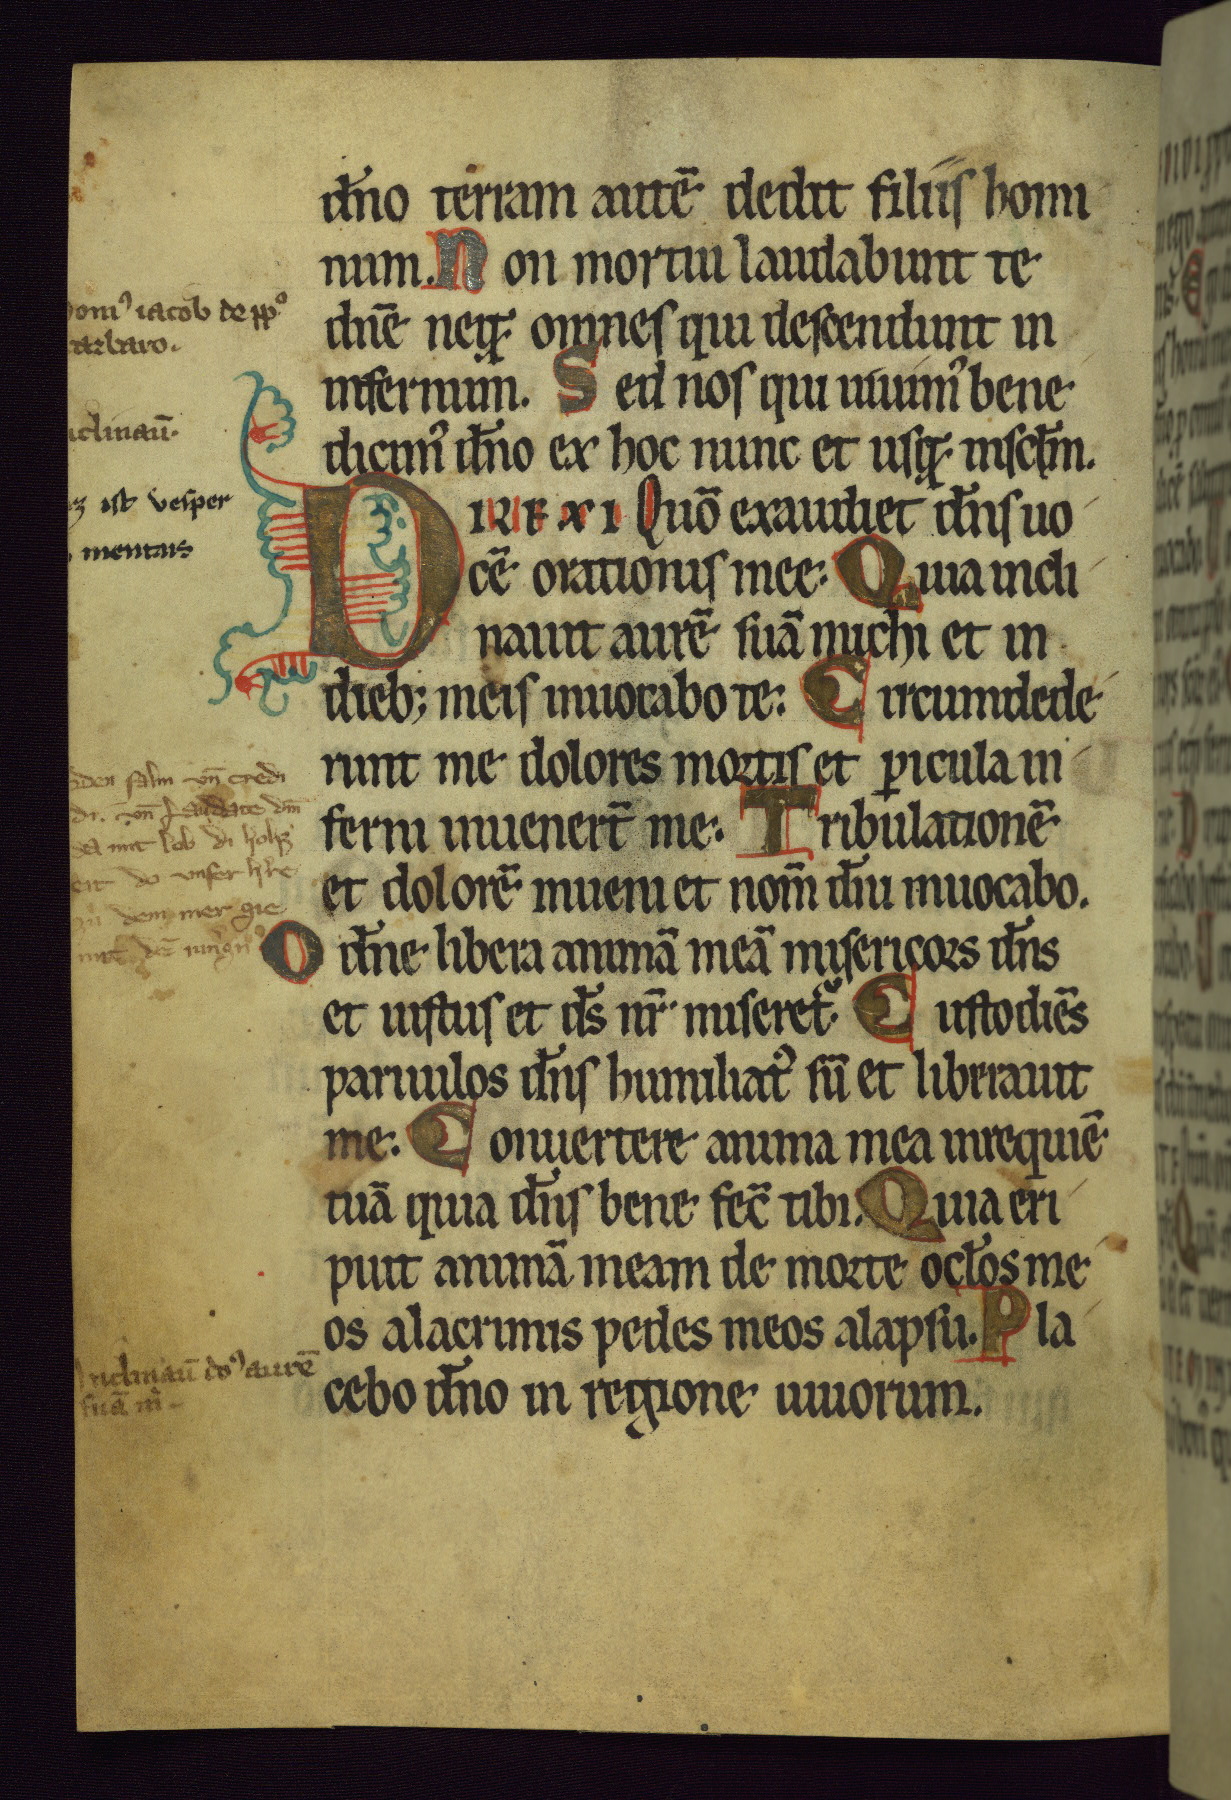 dn̄o terram autē dedit filiis homi
num. Non mortui laudabunt te
dn̄e neq; omnes qui descendunt in
infernum. Sed nos qui uiuim᾽ bene
dicim᾽ dn̄o ex hoc nunc et usq; inscl̄m.
DIREXI Quō exaudiet dn̄s uo
cē orationis mee. Quia incli
nauit aurē suā michi et in
dieb; meis inuocabo te. Circumdede
runt me dolores mortis et pícula in
ferni inuenert̄ me. Tribulationē
et dolorē inueni et nom̄ dn̄i inuocabo.
O dn̄e libera animā meā misericors dn̄s
et iustus et ds̄ nr̄ miseret᷑. Custodiēs
paruulos dn̄s humiliat᾽ sū et liberauit
me. Conuertere anima mea inrequiē
tuā quia dn̄s bene fec̄ tibi. Quia eri
puit animā meam de morte ocl̄os me
os alacrimis pedes meos alapsu. Pla
cebo dn̄o in regione uiuorum.
iacob de pp°
barbaro.
inclinaū.
ist vesper
mentais
inclinaū do᾽ aurē
suā m̄